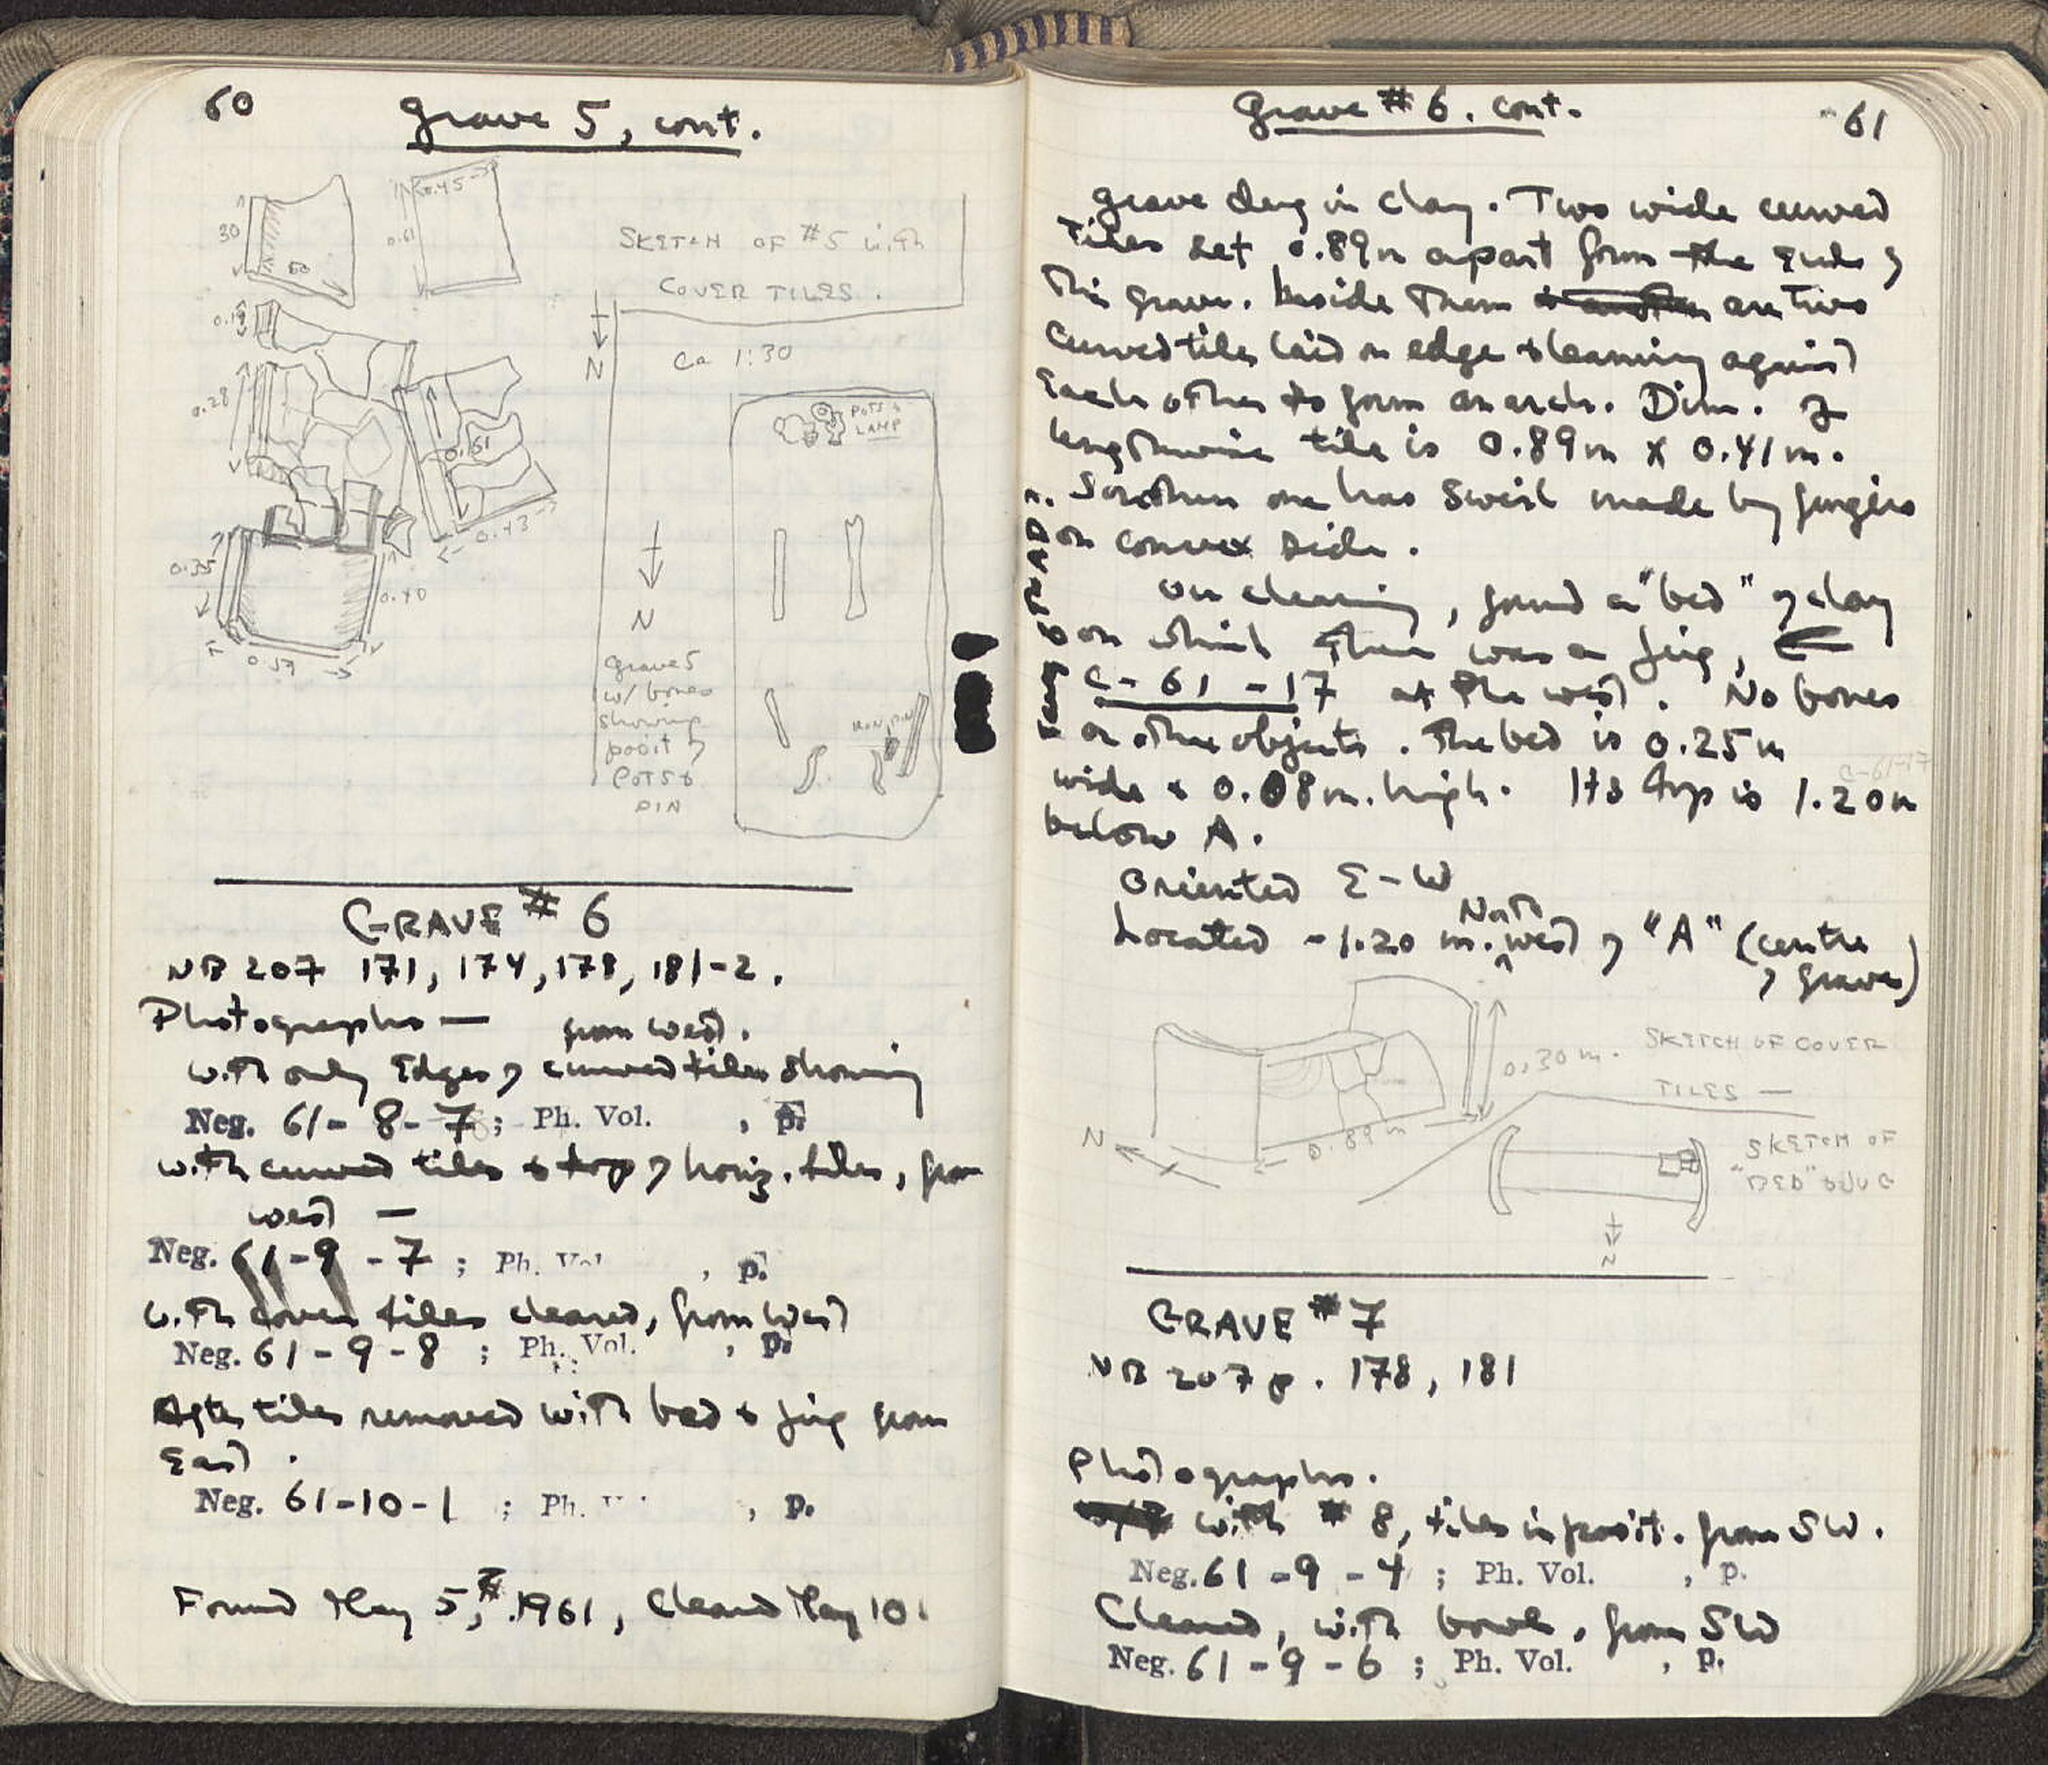 60
Grave 5, cont.
30
50
0.45
0.61
SKETCH OF #5 with
COVER TILES.
0.19
N
ca 1:30
0.28
POTS &
LAMP
0.61
0.43
0.35
0.40
0.37
N
Grave 5
w/ bones
showing
posit of
POTS &
PIN
IRON PIN
GRAVE # 6
NB 207 171, 174, 178, 181-2.
Photographs — from west.
with only edges of curved tiles showing
Neg. 61-8-7; Ph. Vol. , p.
with curved tiles & top of horiz. tiles, from
west —
Neg. 61-9-7; Ph. Vol. , p.
with cover tiles cleared, from West
Neg. 61-9-8; Ph. Vol. , p.
After tiles removed with bed & jug from
East.
Neg. 61-10-1; Ph. , p.
Found May 5, 1961, Cleared May 10.
Grave # 6. cont.
61
Grave dug in clay. Two wide curved
tiles set 0.89m apart form the ends of
this grave. Inside them are two
curved tiles laid on edge & leaning against
each other to form an arch. Dim. of
lengthwise tile is 0.89m x 0.41m.
Southern one has swirl made by fingers
on convex side.
On cleaning, found a "bed" of clay
on which there was a jug,
C-61-17 at the west. No bones
or other objects. The bed is 0.25m
C-61-17
wide & 0.08m. high. Its top is 1.20m
below A.
Oriented E-W
Located -1.20 m. North west of "A" (centre
of grave)
0.30 m.
SKETCH OF COVER
TILES —
0.89 m
N
SKETCH OF
"BED" & JUG
N
GRAVE # 7
NB 207 p. 178, 181
Photographs.
with # 8, tiles in posit. from SW.
Neg. 61-9-4; Ph. Vol. , p.
Cleared, with bowl, from SW
Neg. 61-9-6; Ph. Vol. , p.